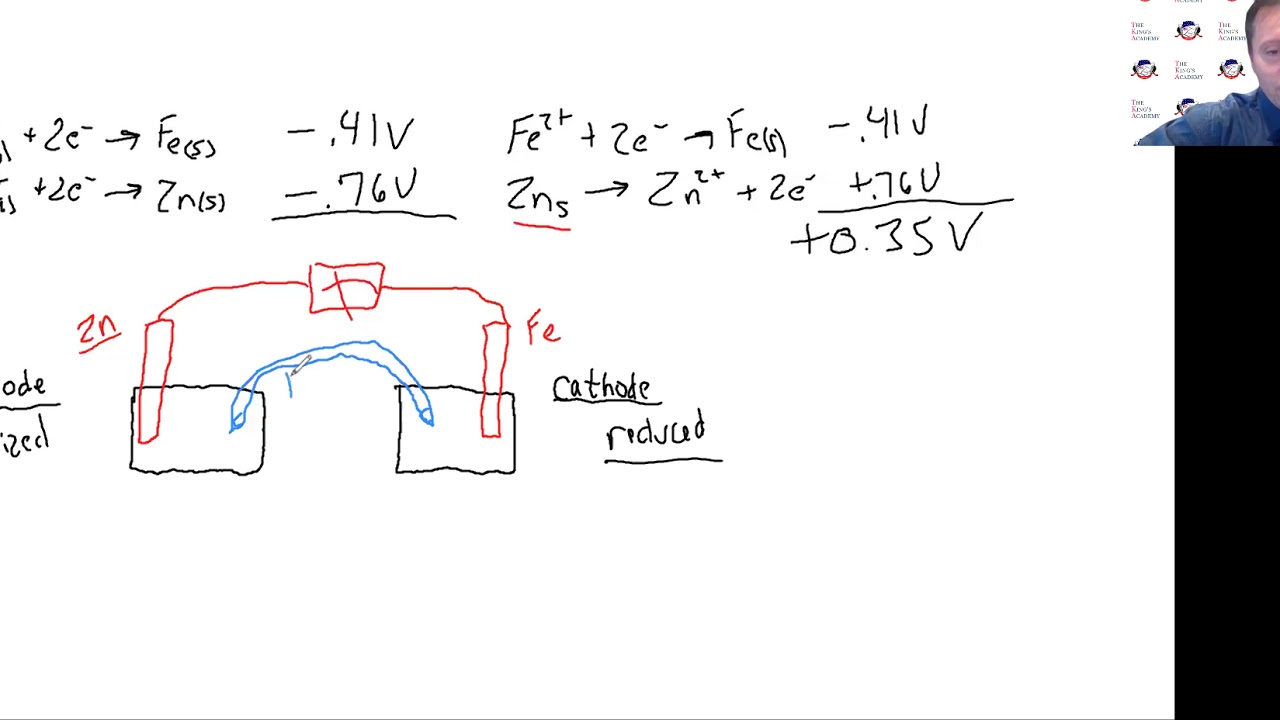 + 2e⁻ → Fe(s) −.41V
+2e⁻ → Zn(s) −.76V
Fe²⁺ + 2e⁻ → Fe(s) −.41V
Zns → Zn²⁺ + 2e⁻ +.76V
+0.35V
Zn
Fe
ode
ized
cathode
reduced
THE KING'S ACADEMY
THE KING'S ACADEMY
THE KING'S ACADEMY
THE KING'S ACADEMY